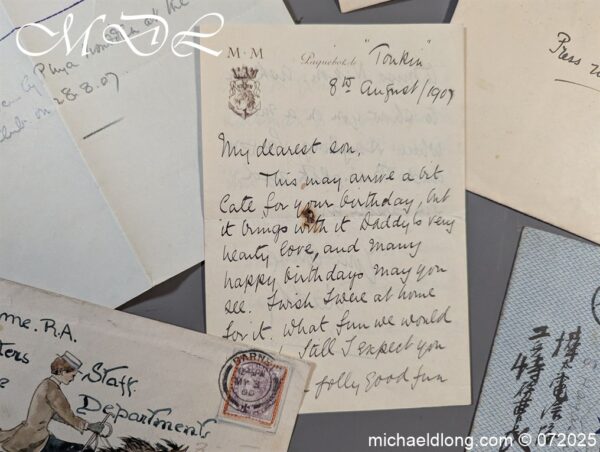 MDL
Phya
on 28.8.07
Press
M·M
Paquebot, le "Tonkin"
8th August/1907
My dearest son,
This may arrive a bit
late for your birthday, but
it brings with it Daddy's very
hearty love, and many
happy birthdays may you
see. I wish I were at home
for it. What fun we would
Still I expect you
jolly good fun
me. R.A.
Staff.
Departments
michaeldlong.com © 072025